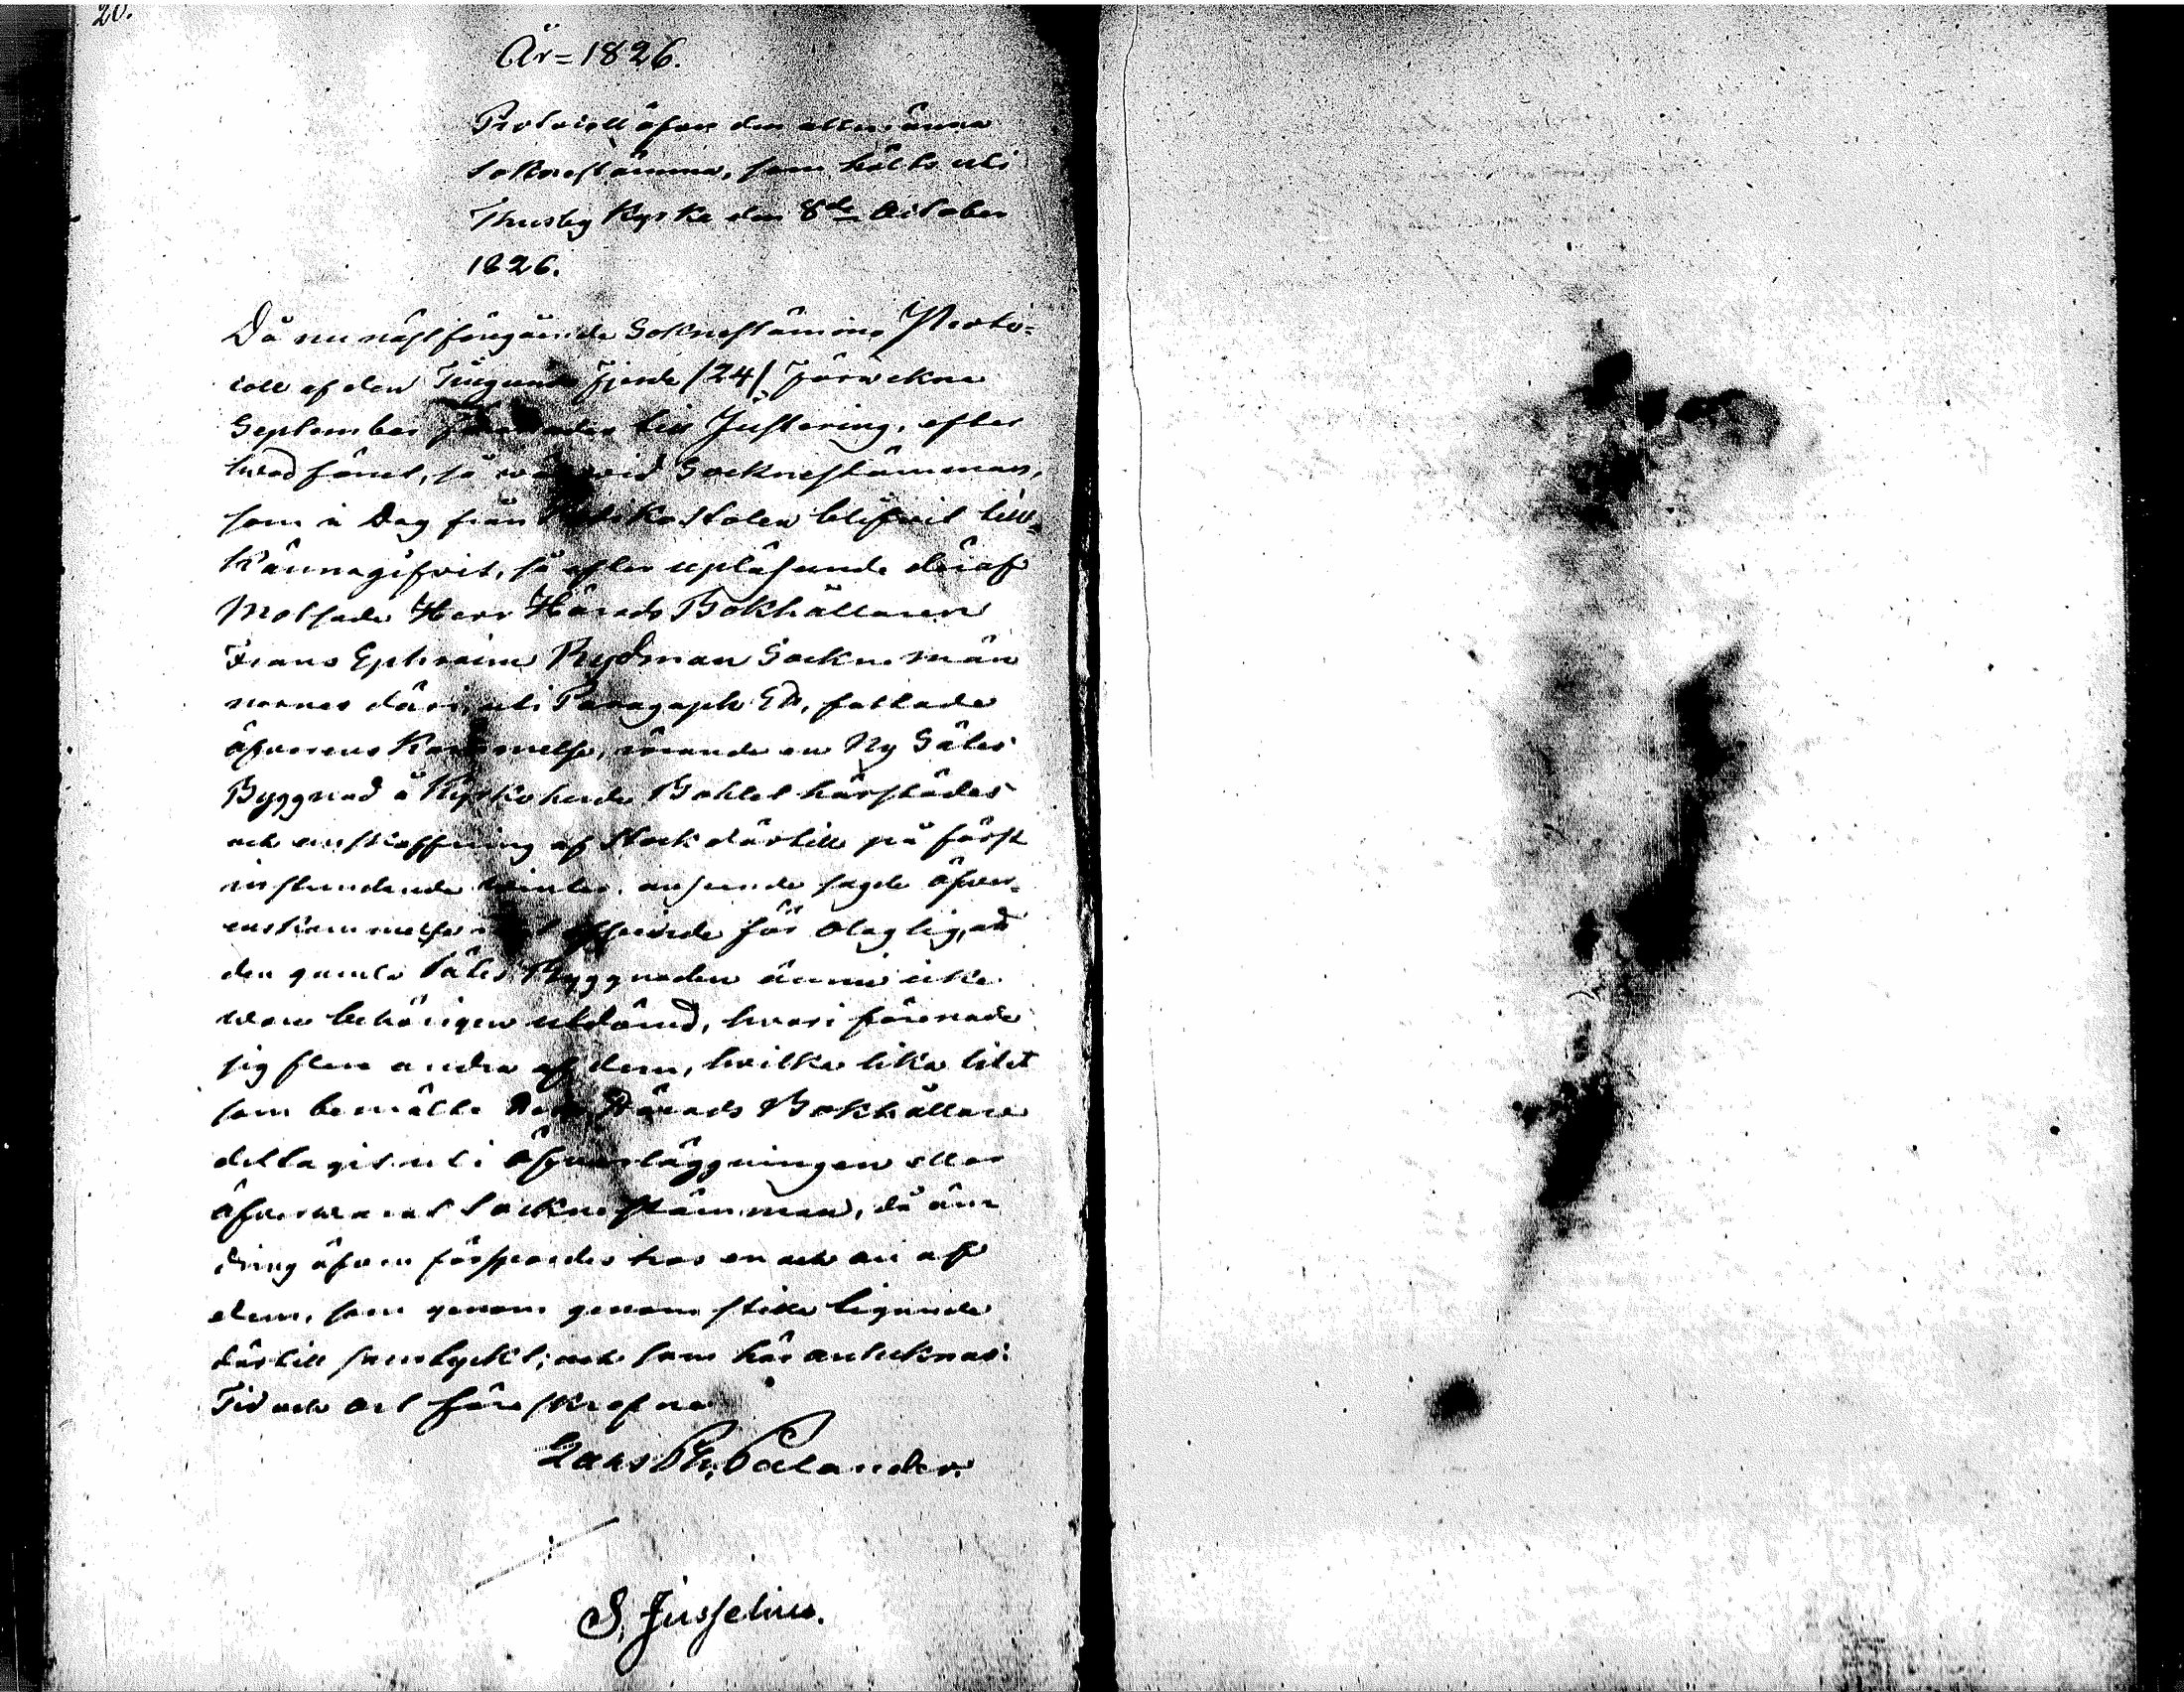 20.
År=1826.
Protocoll öfver den allmänna
Sokneståmma, som hölts uti
Thusby Kyrka den 8de October
1826.
Då nu nästföregående Soknestämmo Proto=
coll af den Tiugunde Fjerde /24/ förwekne
September till Justering, efter
hwad förut, så wäl wid Socknestämman,
som i Dag från Predikostolen blifwit till=
kännagifwit, så efter upläsande däraf
Motsade Herr Härads Bokhållaren
Frans Ephraim Rydman Sockne män
nernes däri, uti Paragraph Ett, fattade
öfverens Kommelse, rörande en Ny Säles
Byggnad å Kyrkoherde Bohlet härstädes
och anskaffning af Stock därtill på först
instundande winter, ansende sagde öfver=
enskommelse för olaglig, då
den gamla Säles Byggnaden ännu icke
vore behörigen utdömd, hvari förenade
sig flere andra af dem, hvilka lika litet
som bemälte Herr Härads Bokhållare
deltagit uti Öfverläggningen eller
öfvervarat Socknestämman, då änn
dring äfven försportes hos en och an af
dem, som genom genom stillatigande
därtill samtyckt; och som här antecknas:
Tid och ort föreskrefne
Lars Th. Palander.
S. Jusselius.